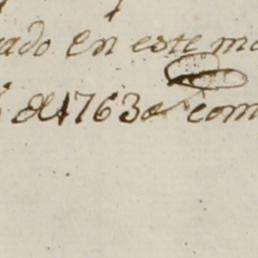 ado en este m
de 1763 com